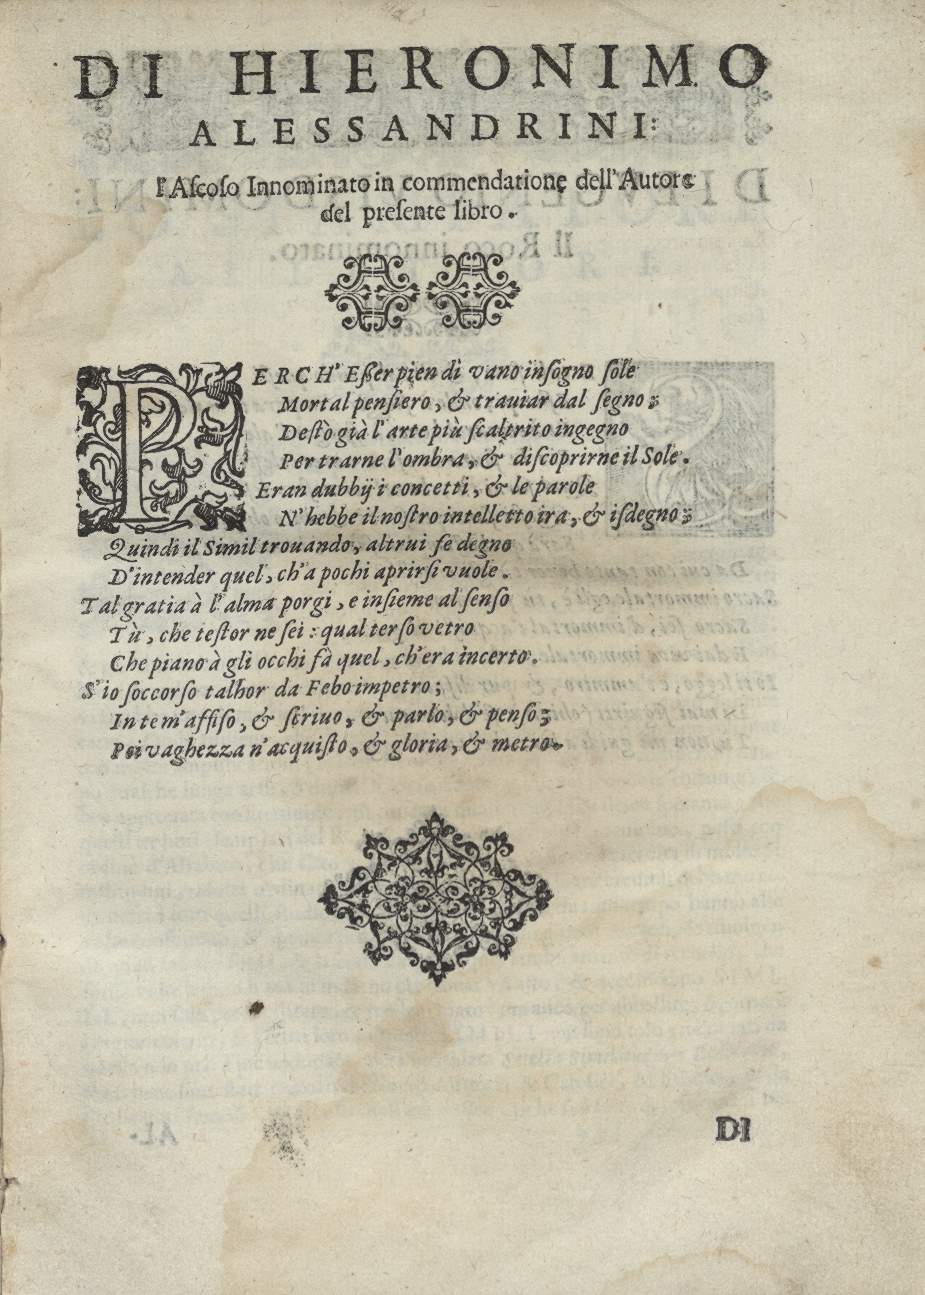 DI HIERONIMO
ALESSANDRINI:
l'Ascoso Innominato in commendatione dell'Autore
del presente libro.
PERCH' Eßer pien di vano insogno sole
Mortal pensiero, & trauiar dal segno;
Destò già l'arte più scaltrito ingegno
Per trarne l'ombra, & discoprirne il Sole.
Eran dubbij i concetti, & le parole
N'hebbe il nostro intelletto ira, & isdegno;
Quindi il Simil trouando, altrui fe degno
D'intender quel, ch'a pochi aprirsi vuole.
Tal gratia à l'alma porgi, e insieme al senso
Tù, che testor ne sei: qual terso vetro
Che piano à gli occhi fà quel, ch'era incerto.
S'io soccorso talhor da Febo impetro;
In te m'affiso, & scriuo, & parlo, & penso;
Poi vaghezza n'acquisto, & gloria, & metro.
DI